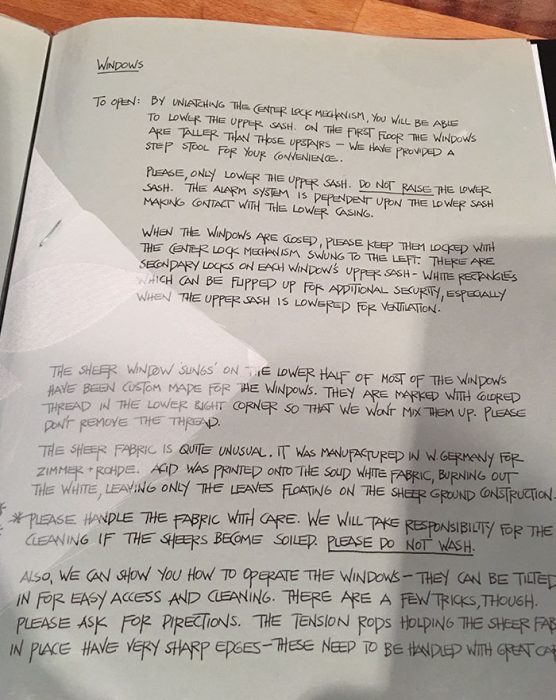 WINDOWS
TO OPEN: BY UNLATCHING THE CENTER LOCK MECHANISM, YOU WILL BE ABLE
TO LOWER THE UPPER SASH. ON THE FIRST FLOOR THE WINDOWS
ARE TALLER THAN THOSE UPSTAIRS – WE HAVE PROVIDED A
STEP STOOL FOR YOUR CONVENIENCE.
PLEASE, ONLY LOWER THE UPPER SASH. DO NOT RAISE THE LOWER
SASH. THE ALARM SYSTEM IS DEPENDENT UPON THE LOWER SASH
MAKING CONTACT WITH THE LOWER CASING.
WHEN THE WINDOWS ARE CLOSED, PLEASE KEEP THEM LOCKED WITH
THE CENTER LOCK MECHANISM SWUNG TO THE LEFT. THERE ARE
SECONDARY LOCKS ON EACH WINDOW'S UPPER SASH – WHITE RECTANGLES
WHICH CAN BE FLIPPED UP FOR ADDITIONAL SECURITY, ESPECIALLY
WHEN THE UPPER SASH IS LOWERED FOR VENTILATION.
THE SHEER WINDOW 'SLINGS' ON THE LOWER HALF OF MOST OF THE WINDOWS
HAVE BEEN CUSTOM MADE FOR THE WINDOWS. THEY ARE MARKED WITH COLORED
THREAD IN THE LOWER RIGHT CORNER SO THAT WE WON'T MIX THEM UP. PLEASE
DON'T REMOVE THE THREAD.
THE SHEER FABRIC IS QUITE UNUSUAL. IT WAS MANUFACTURED IN W. GERMANY FOR
ZIMMER + ROHDE. ACID WAS PRINTED ONTO THE SOLID WHITE FABRIC, BURNING OUT
THE WHITE, LEAVING ONLY THE LEAVES FLOATING ON THE SHEER GROUND CONSTRUCTION.
*PLEASE HANDLE THE FABRIC WITH CARE. WE WILL TAKE RESPONSIBILITY FOR THE
CLEANING IF THE SHEERS BECOME SOILED. PLEASE DO NOT WASH.
ALSO, WE CAN SHOW YOU HOW TO OPERATE THE WINDOWS – THEY CAN BE TILTED
IN FOR EASY ACCESS AND CLEANING. THERE ARE A FEW TRICKS, THOUGH.
PLEASE ASK FOR DIRECTIONS. THE TENSION RODS HOLDING THE SHEER FAB
IN PLACE HAVE VERY SHARP EDGES – THESE NEED TO BE HANDLED WITH GREAT CAR